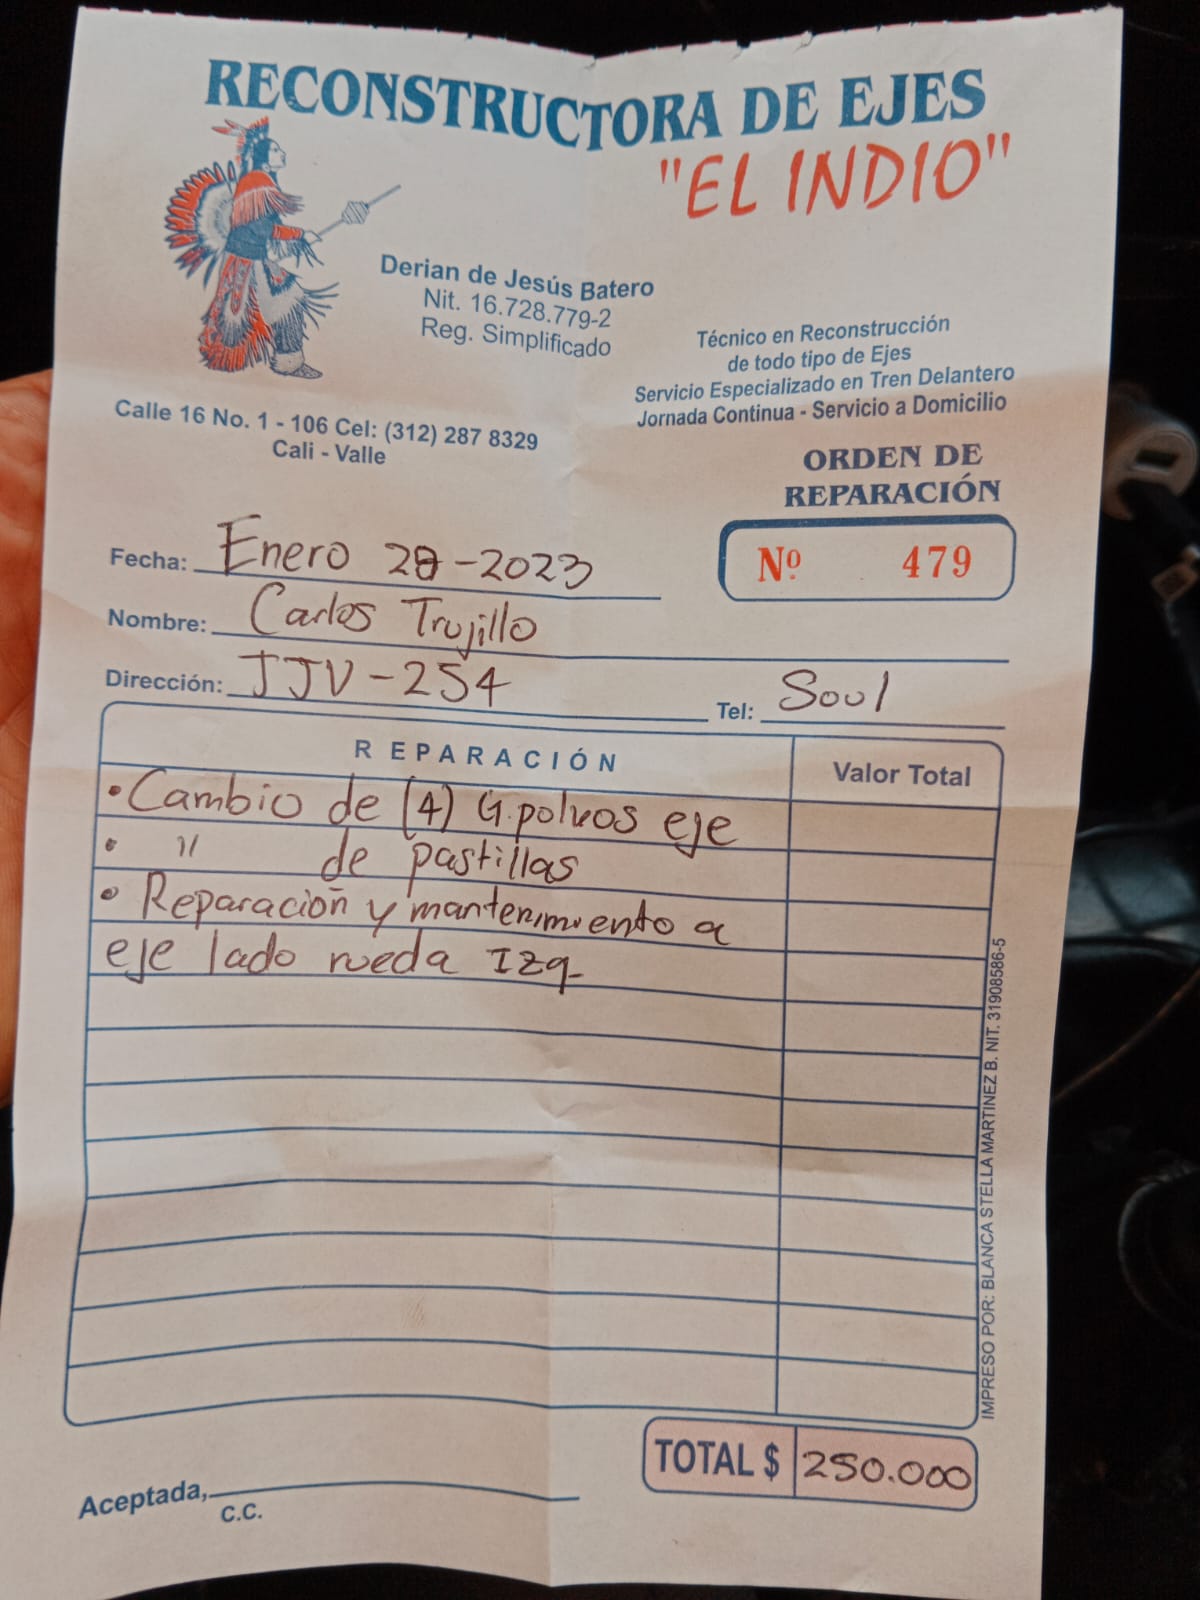 RECONSTRUCTORA DE EJES
"EL INDIO"
Derian de Jesús Batero
Nit. 16.728.779-2
Reg. Simplificado
Técnico en Reconstrucción
de todo tipo de Ejes
Servicio Especializado en Tren Delantero
Jornada Continua - Servicio a Domicilio
Calle 16 No. 1 - 106 Cel: (312) 287 8329
Cali - Valle
ORDEN DE
REPARACIÓN
Nº 479
Fecha: Enero 28-2023
Nombre: Carlos Trujillo
Dirección: JJV-254 Tel: Soul
REPARACIÓN Valor Total
• Cambio de (4) G.polvos eje
• " de pastillas
• Reparación y mantenimiento a
eje lado rueda Izq-
TOTAL $ 250.000
Aceptada,
C.C.
IMPRESO POR: BLANCA STELLA MARTINEZ B. NIT. 31908586-5